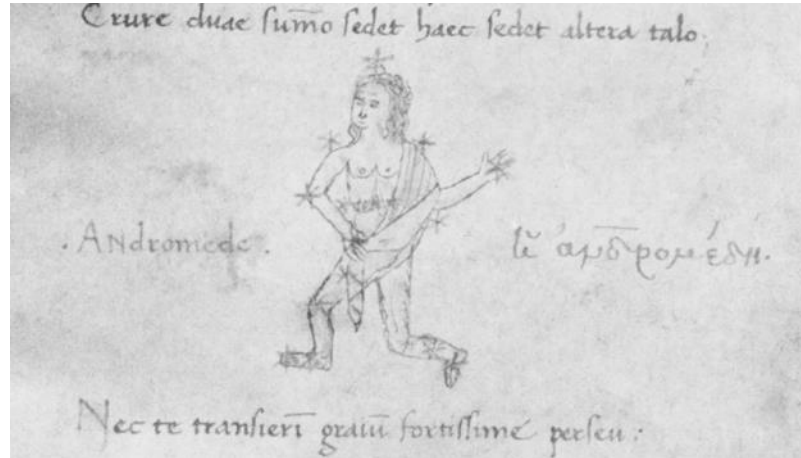 Crure duae sum̄o sedet haec sedet altera talo.
. Andromede .
ἀνδρομέδη.
Nec te transierī graiū fortissime perseu :